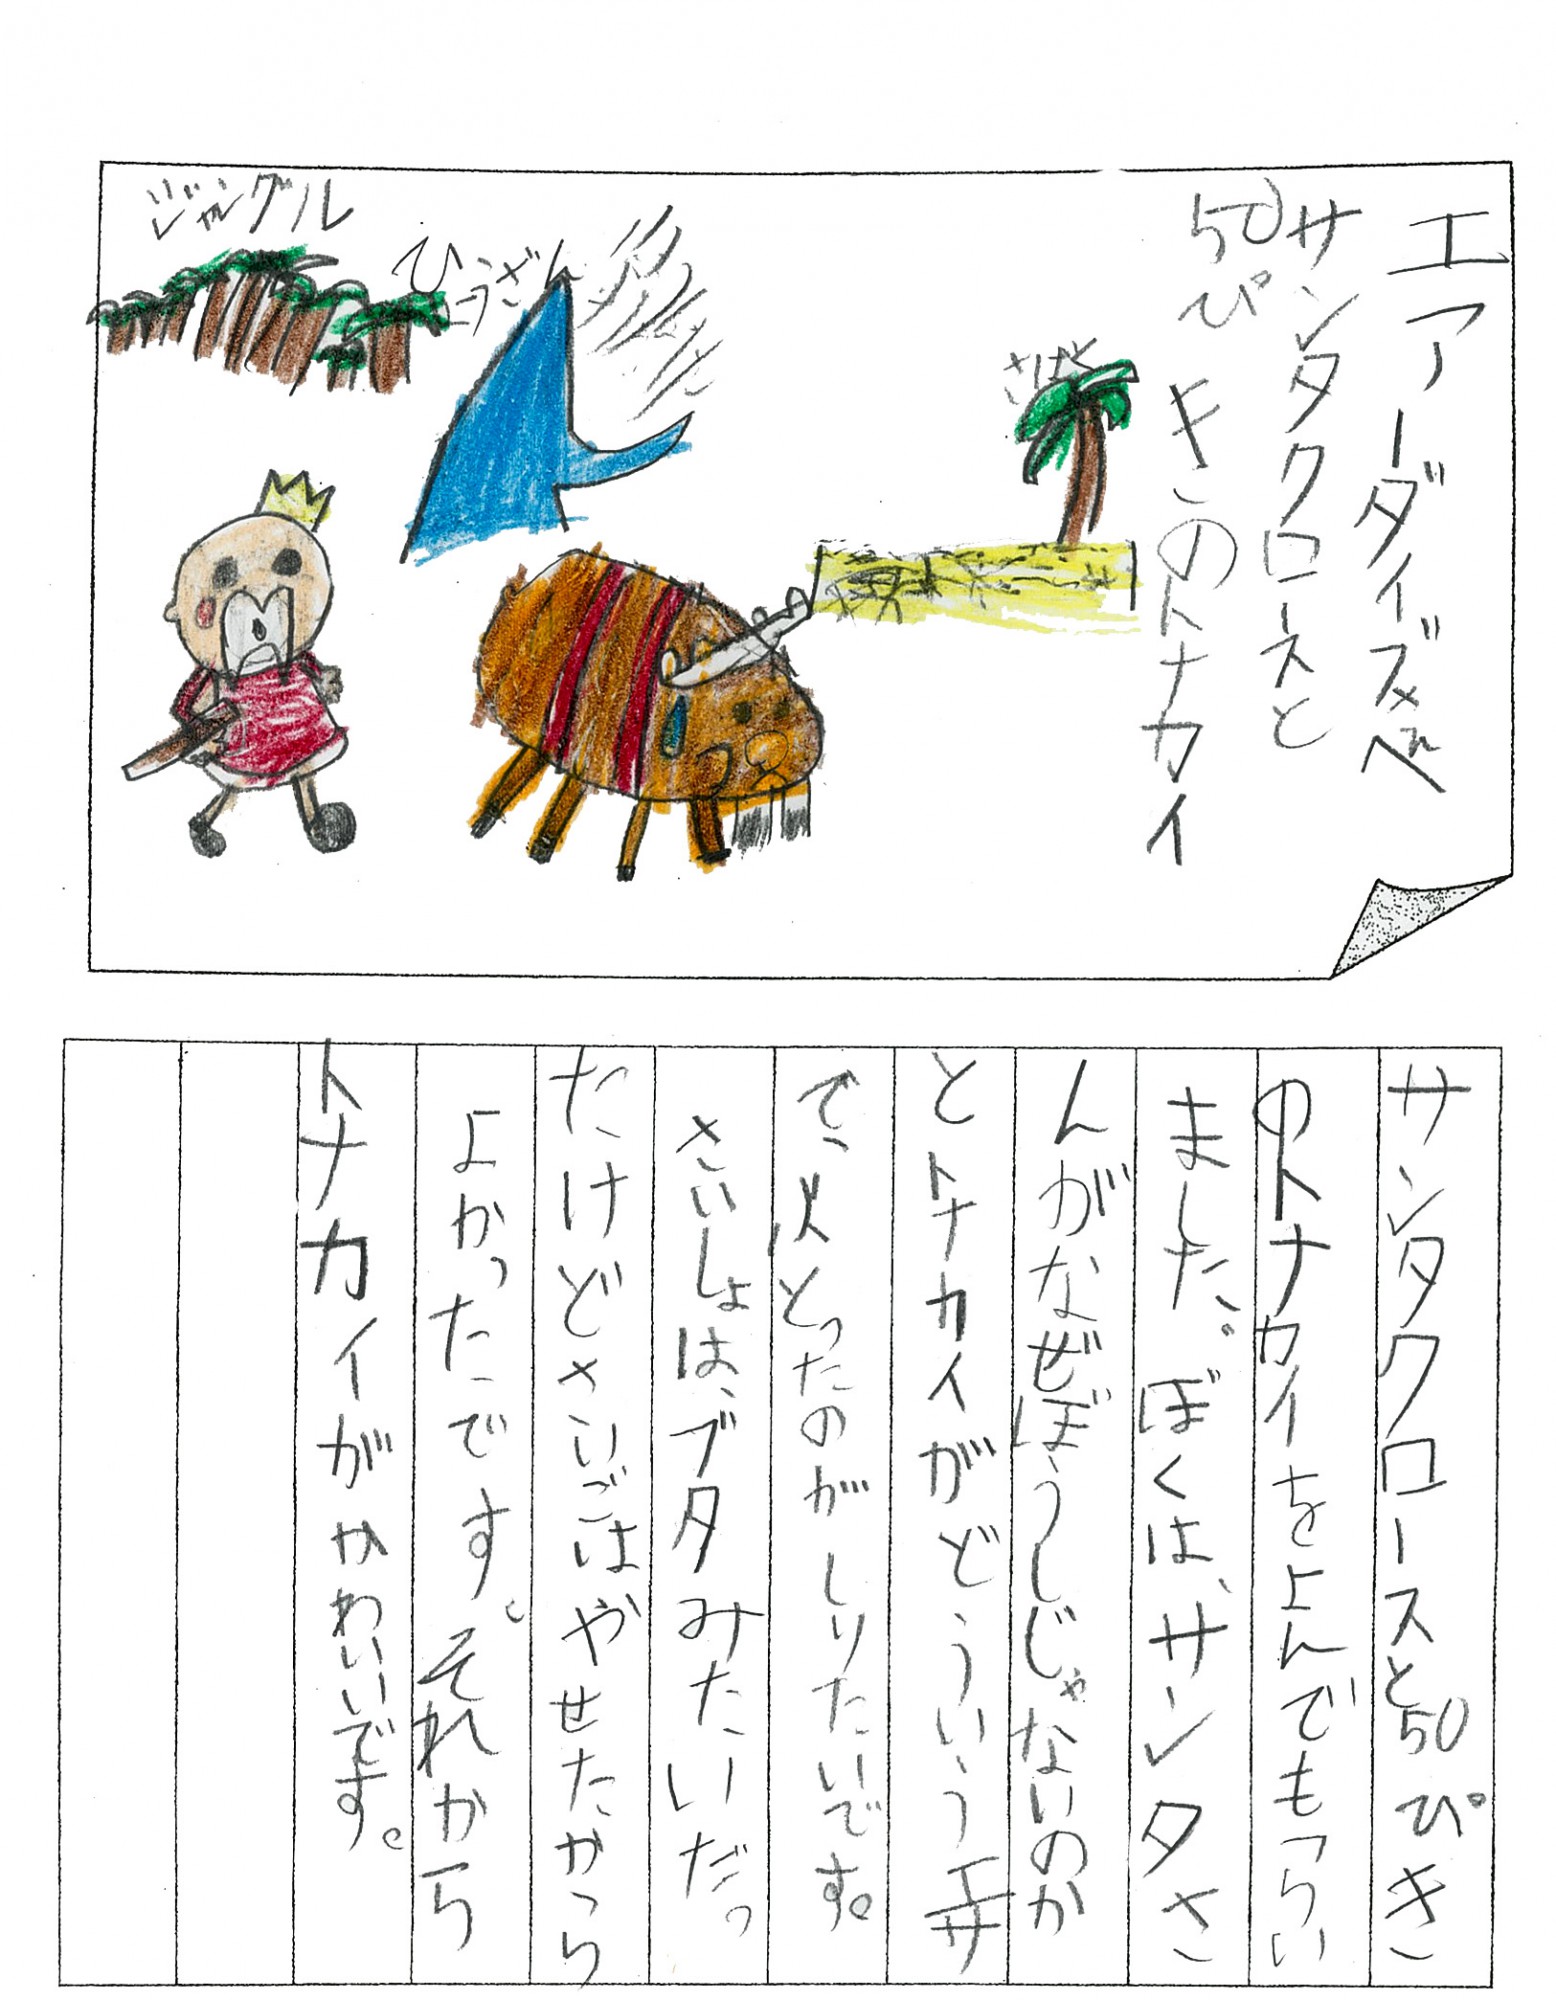 エアーダイズ
サンタクロースと
50ぴきのトナカイ
さばく
ひょうざん
ジャングル
サンタクロースと50ぴき
のトナカイをよんでもらい
ました。ぼくは、サンタさ
んがなぜぼうしじゃないのか
とトナカイがどういうエサ
で、ふとったのがしりたいです。
さいしょは、ブタみたいだっ
たけどさいごはやせたから
よかったです。それから
トナカイがかわいいです。